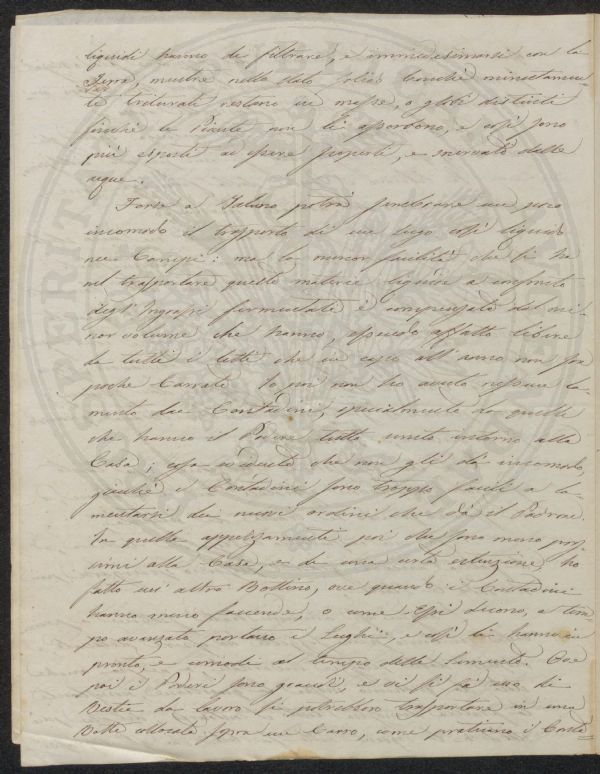 liquidi hanno di filtrare, e immedesimarsi con la
Terra, mentre nello stato solido benchè minutamen-
te triturati restano in masse, o globi distinti
finchè le Piante non li assorbono, e così sono
più esposti ad essere, e snervati dalle
acque.
Forse a Taluno potrà sembrare un poco
incomodo il trasporto di un sugo così liquido
nei Campi: ma la minor facilità che si ha
nel trasportare queste materie liquide a confronto
degl'Ingrassi fermentati è compensata dal mi-
nor volume che hanno, essendo affatto libere
da tutti i letti che in capo all'anno non son
poche Carrate. Io poi non ho avuto nessun la-
mento dai Contadini, specialmente da quelli
che hanno il Podere tutto unito intorno alla
Casa; cosa evidente che non gli dà incomodo,
giacchè i Contadini sono troppo facili a la-
mentarsi dei nuovi ordini che dà il Padrone.
In quelli appezzamenti poi che sono meno pros
simi alla Casa, e di una certa estenzione ho
fatto un'altro Bottino, ove quando i Contadini
hanno meno faccende, o come Essi dicono, a tem-
po avanzato portano i Sughi, e così li hanno in
pronto, e comodi al tempo delle Sementi. Ove
poi i Poderi sono, e vi si fà uso di
Bestie da lavoro si potrebbero trasportare in una
Botte collocata sopra un Carro, come praticano i Conta=